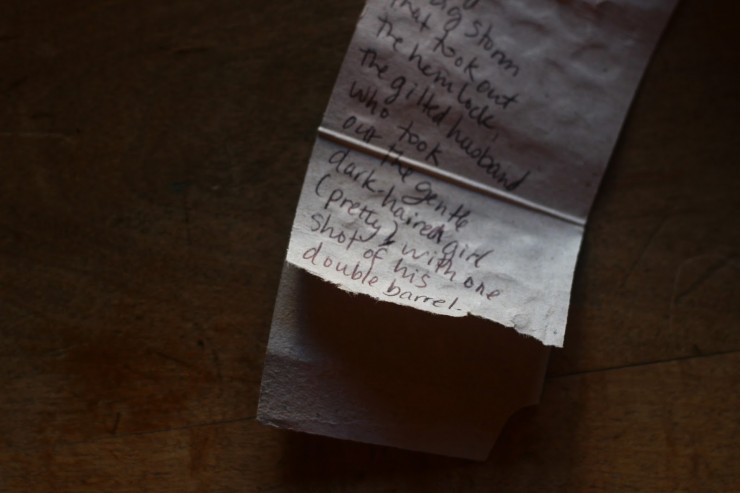 storm
that took out
the hemlock,
the gilted husband
who took
out the gentle
dark-haired girl
(pretty) with one
shot of his
double barrel.